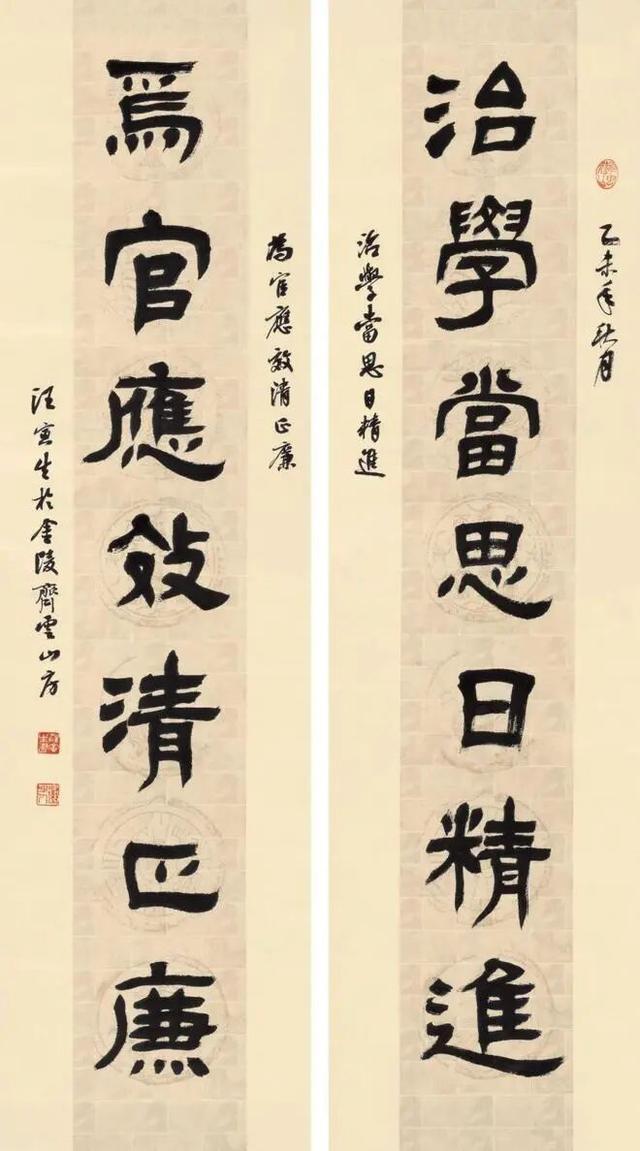 乙未年秋月
治學當思日精進
治學當思日精進
為官應效清正廉
爲官應效清正廉
汪寅生於金陵齊雲山房